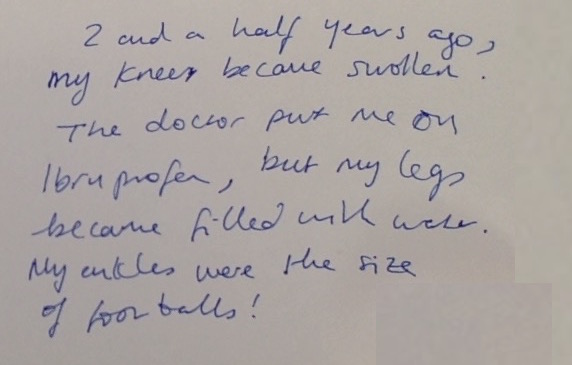 2 and a half years ago,
my knees became swollen.
The doctor put me on
Ibruprofen, but my legs
became filled with water.
My ankles were the size
of footballs!